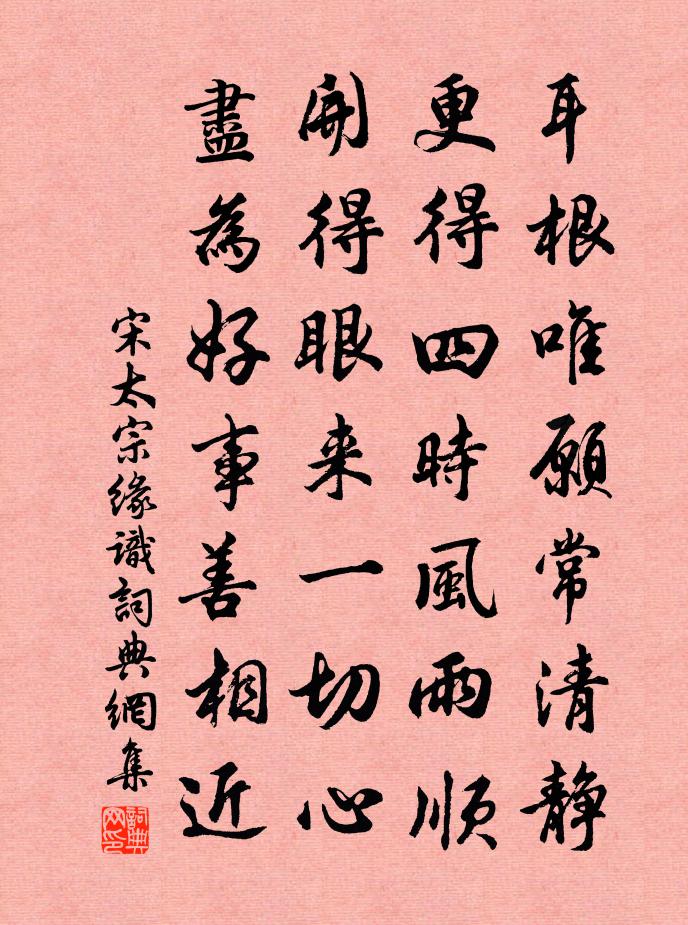 耳根唯願常清静
更得四時風雨順
開得眼来一切心
盡為好事善相近
宋太宗緣識詞典網集
詞典网印